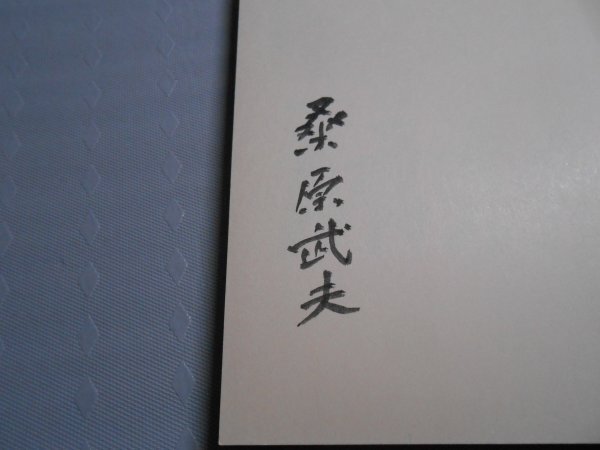 桑原武夫